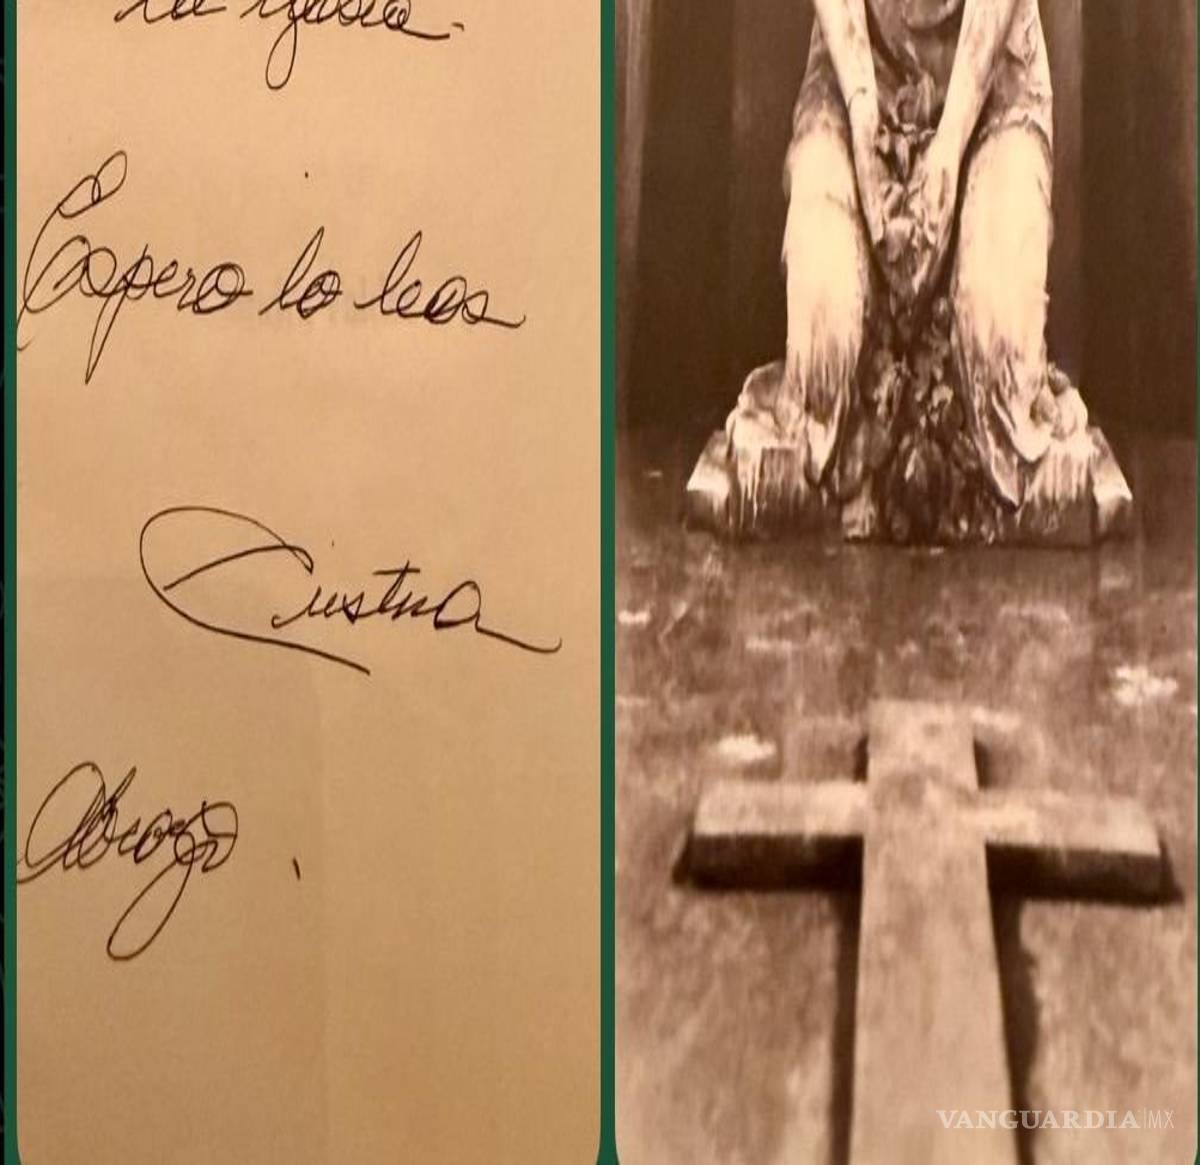 Espero lo leas
Cristina
Abrazo
VANGUARDIA|MX